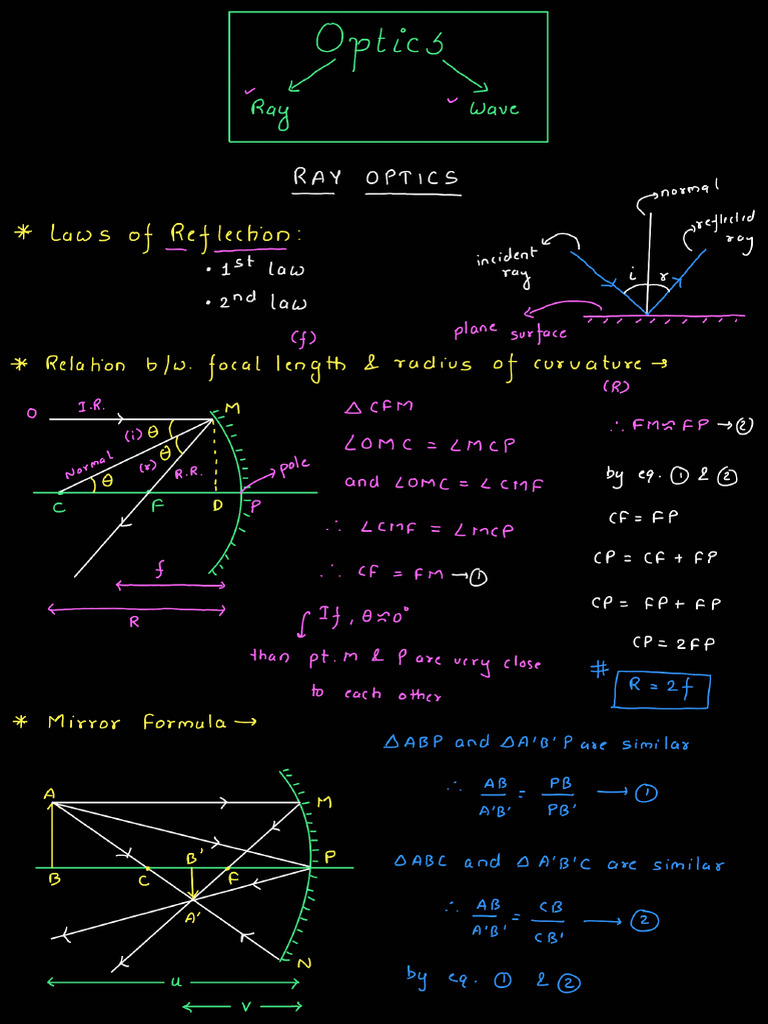 Optics
Ray Wave
RAY OPTICS
* Laws of Reflection:
• 1st law
• 2nd law
normal
reflected ray
incident ray
i r
plane surface
(f)
* Relation b/w. focal length & radius of curvature →
(R)
O I.R. M
(i) θ
Normal (r) θ
R.R.
θ
pole
C F D P
f
R
△ CFM
∠OMC = ∠MCP
and ∠OMC = ∠CMF
∴ ∠CMF = ∠MCP
∴ CF = FM → ①
If, θ ≈ 0°
than pt. M & P are very close
to each other
∴ FM ≈ FP → ②
by eq. ① & ②
CF = FP
CP = CF + FP
CP = FP + FP
CP = 2FP
# R = 2f
* Mirror Formula →
A M
B' P
B C F
A'
N
u
v
△ABP and △A'B'P are similar
∴ AB/A'B' = PB/PB' → ①
△ABC and △A'B'C are similar
∴ AB/A'B' = CB/CB' → ②
by eq. ① & ②